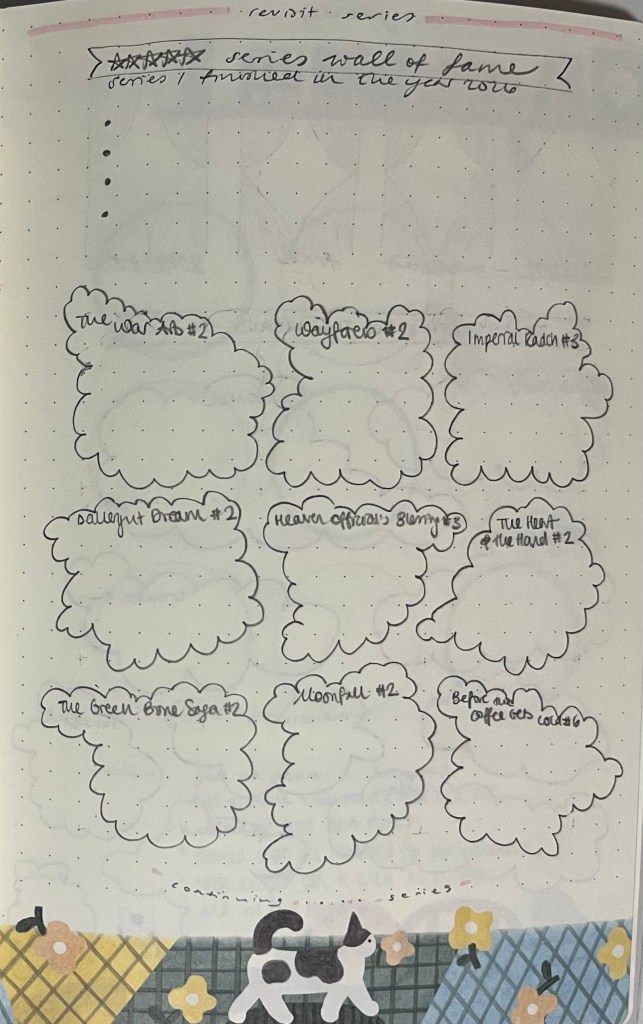 revisit series
series wall of fame
series I finished in the year 2026
The War Arts #2
Wayfarers #2
Imperial Radch #3
Dallergut Dream #2
Heaven Official's Blessing #3
The Heart
& the Hand #2
The Green Bone Saga #2
Moonfall #2
Before the
Coffee Gets
Cold #6
continuing ...... series